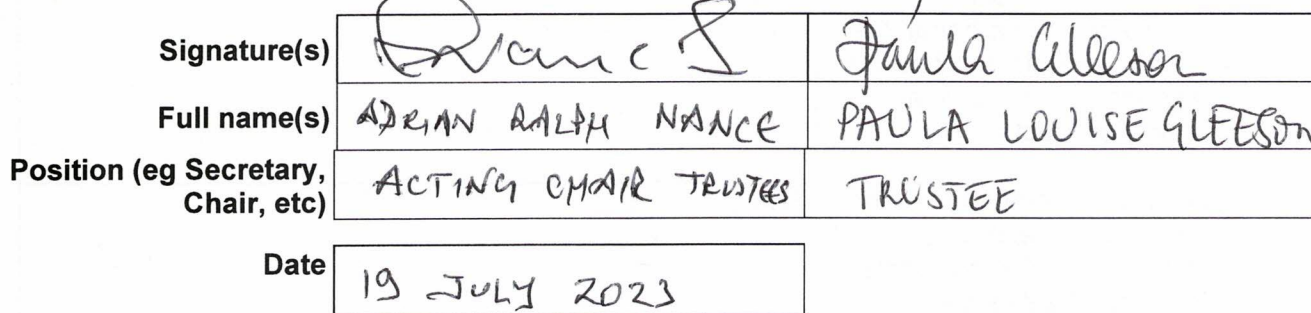 Signature(s) Paula Gleeson
Full name(s) ADRIAN RALPH NANCE PAULA LOUISE GLEESON
Position (eg Secretary, ACTING CHAIR TRUSTEES TRUSTEE
Chair, etc)
Date 19 JULY 2023